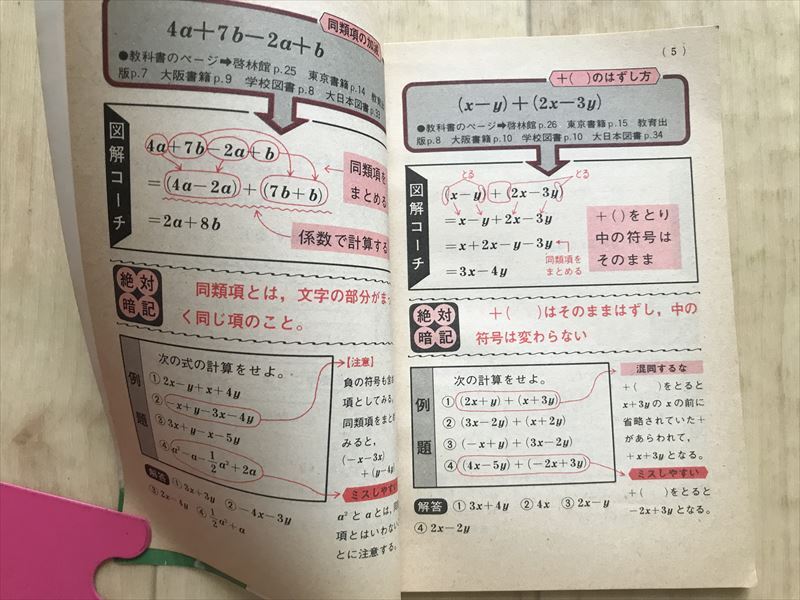 同類項の加減
4a+7b−2a+b
●教科書のページ➡啓林館p.25 東京書籍p.14 教育出
版p.7 大阪書籍p.9 学校図書p.8 大日本図書p.33
図解コーチ
4a+7b−2a+b
=(4a−2a)+(7b+b)
=2a+8b
同類項を
まとめる
係数で計算する
絶対
暗記
同類項とは，文字の部分がまっ
く同じ項のこと。
例題
次の式の計算をせよ。
① 2x−y+x+4y
② −x+y−3x−4y
③ 3x+y−x−5y
④ a²−a−1/2a²+2a
【注意】
負の符号も含
項としてみる。
同類項をまと
みると，
(−x−3x)
+(y−4y)
ミスしやすい
a²とaとは，同
項とはいわない
とに注意する。
解答 ①3x+3y ②−4x−3y
③2x−4y ④1/2a²+a
（5）
＋（ ）のはずし方
(x−y)+(2x−3y)
●教科書のページ➡啓林館p.26 東京書籍p.15 教育出
版p.8 大阪書籍p.10 学校図書p.10 大日本図書p.34
図解コーチ
とる とる
(x−y)+(2x−3y)
=x−y+2x−3y
=x+2x−y−3y
=3x−4y
同類項を
まとめる
＋（）をとり
中の符号は
そのまま
絶対
暗記
＋（ ）はそのままはずし，中の
符号は変わらない
例題
次の計算をせよ。
① (2x+y)+(x+3y)
② (3x−2y)+(x+2y)
③ (−x+y)+(3x−2y)
④ (4x−5y)+(−2x+3y)
混同するな
＋（ ）をとると
x+3yのxの前に
省略されていた＋
があらわれて，
+x+3yとなる。
ミスしやすい
＋（ ）をとると
−2x+3yとなる。
解答 ①3x+4y ②4x ③2x−y
④2x−2y